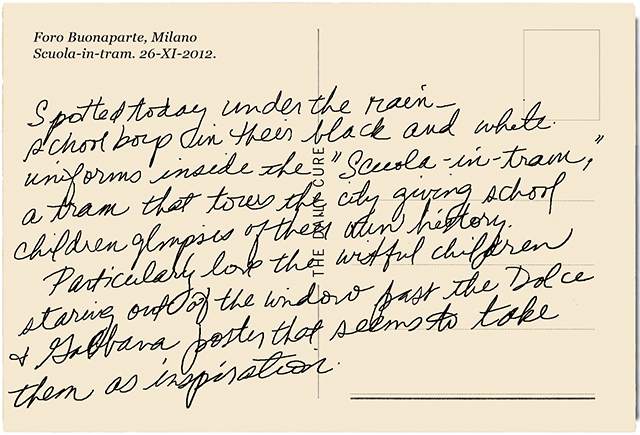 Foro Buonaparte, Milano
Scuola-in-tram. 26-XI-2012.
Spotted today under the rain –
school boys in their black and white
uniforms inside the "Scuola-in-tram,"
a tram that tours the city giving school
children glimpses of their own history.
Particularly love the wistful children
staring out of the window past the Dolce
& Gabbana poster that seems to take
them as inspiration.
THE DAILY CURE